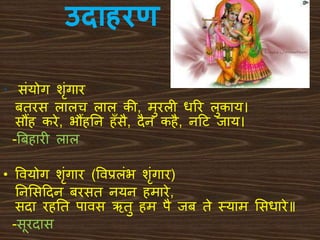 उदाहरण
संयोग शृंगार
बतरस लालच लाल की, मुरली धरि लुकाय।
सौंह करे, भौंहनि हँसै, दैन कहै, नटि जाय।
-बिहारी लाल
• वियोग शृंगार (विप्रलंभ शृंगार)
निसिदिन बरसत नयन हमारे,
सदा रहति पावस ऋतु हम पै जब ते स्याम सिधारे॥
-सूरदास